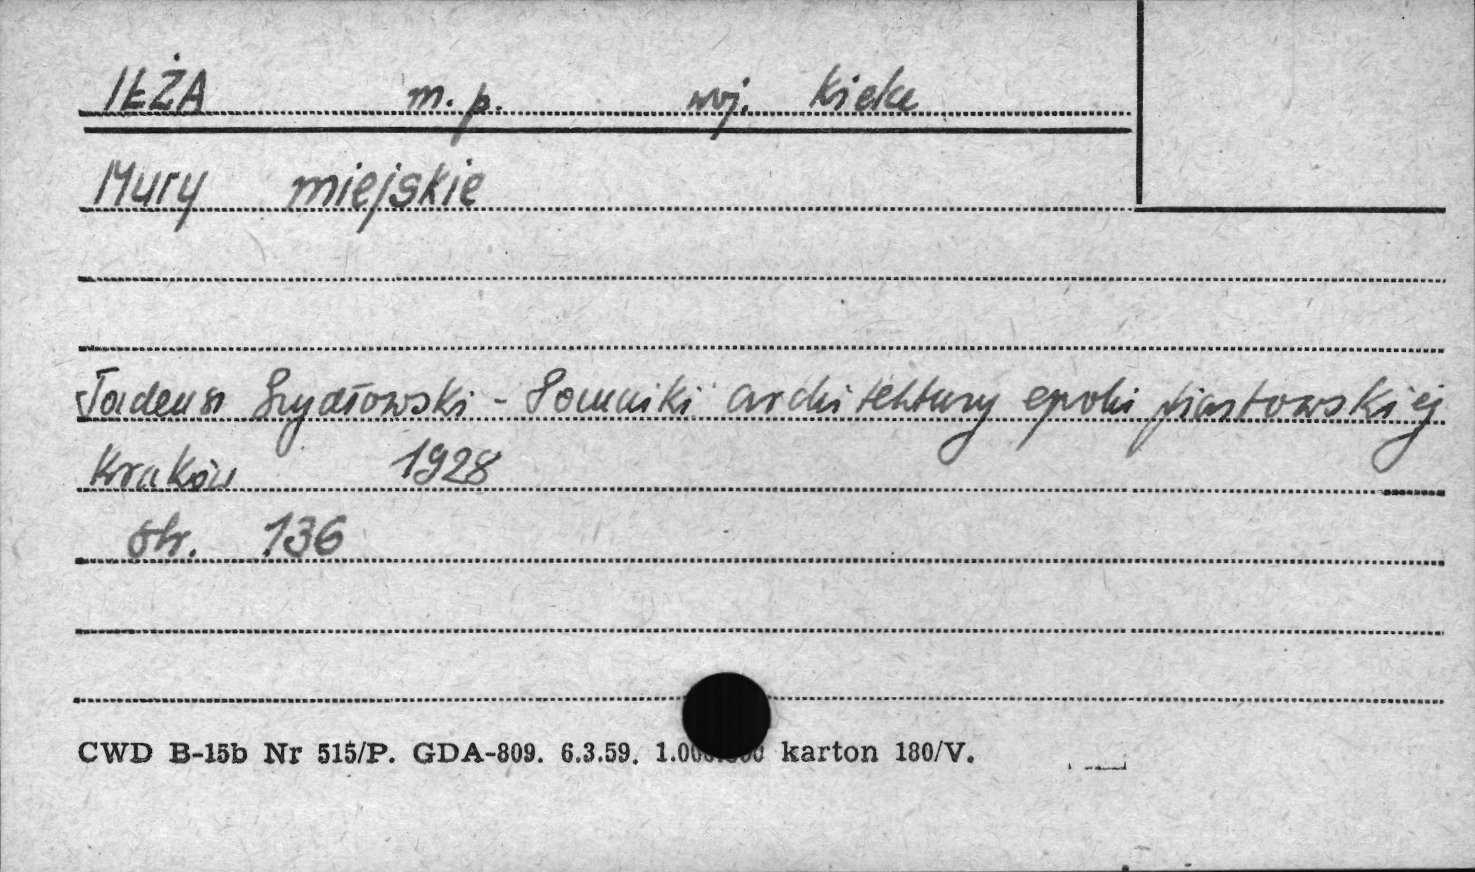 IŁŻA m. p. woj. Kielce
Mury miejskie
Tadeusz Szydłowski - Pomniki architektury epoki piastowskiej
Kraków 1928
str. 136
CWD B-15b Nr 515/P. GDA-809. 6.3.59. 1.000.000 karton 180/V.